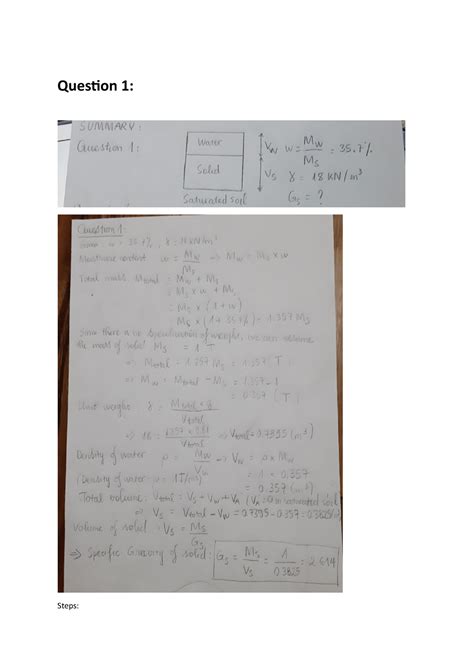 Question 1:
SUMMARY:
Question 1:
Water
Solid
Saturated soil
Vw
Vs
w = Mw / Ms = 35.7%
γ = 18 KN/m³
Gs = ?
Question 1:
Given w = 35.7%, γ = 18 KN/m³
Moisture content w = Mw / Ms → Mw = Ms x w
Total mass Mtotal = Mw + Ms
= Ms x w + Ms
= Ms x (1 + w)
= Ms x (1 + 35.7%) = 1.357 Ms
Since there is no specification of weight, we can assume
the mass of solid Ms = 1 T
⇒ Mtotal = 1.357 Ms = 1.357 (T)
⇒ Mw = Mtotal - Ms = 1.357 - 1
= 0.357 (T)
Unit weight γ = Mtotal x g / Vtotal
⇒ 18 = 1.357 x 9.81 / Vtotal ⇒ Vtotal = 0.7395 (m³)
Density of water ρ = Mw / Vw → Vw = ρ x Mw
(Density of water = 1T/m³) = 1 x 0.357
= 0.357 (m³)
Total volume: Vtotal = Vs + Vw + VA (VA = 0 in saturated soil)
⇒ Vs = Vtotal - Vw = 0.7395 - 0.357 = 0.3825 (m³)
Volume of solid: Vs = Ms / Gs
⇒ Specific Gravity of solid: Gs = Ms / Vs = 1 / 0.3825 = 2.614
Steps: